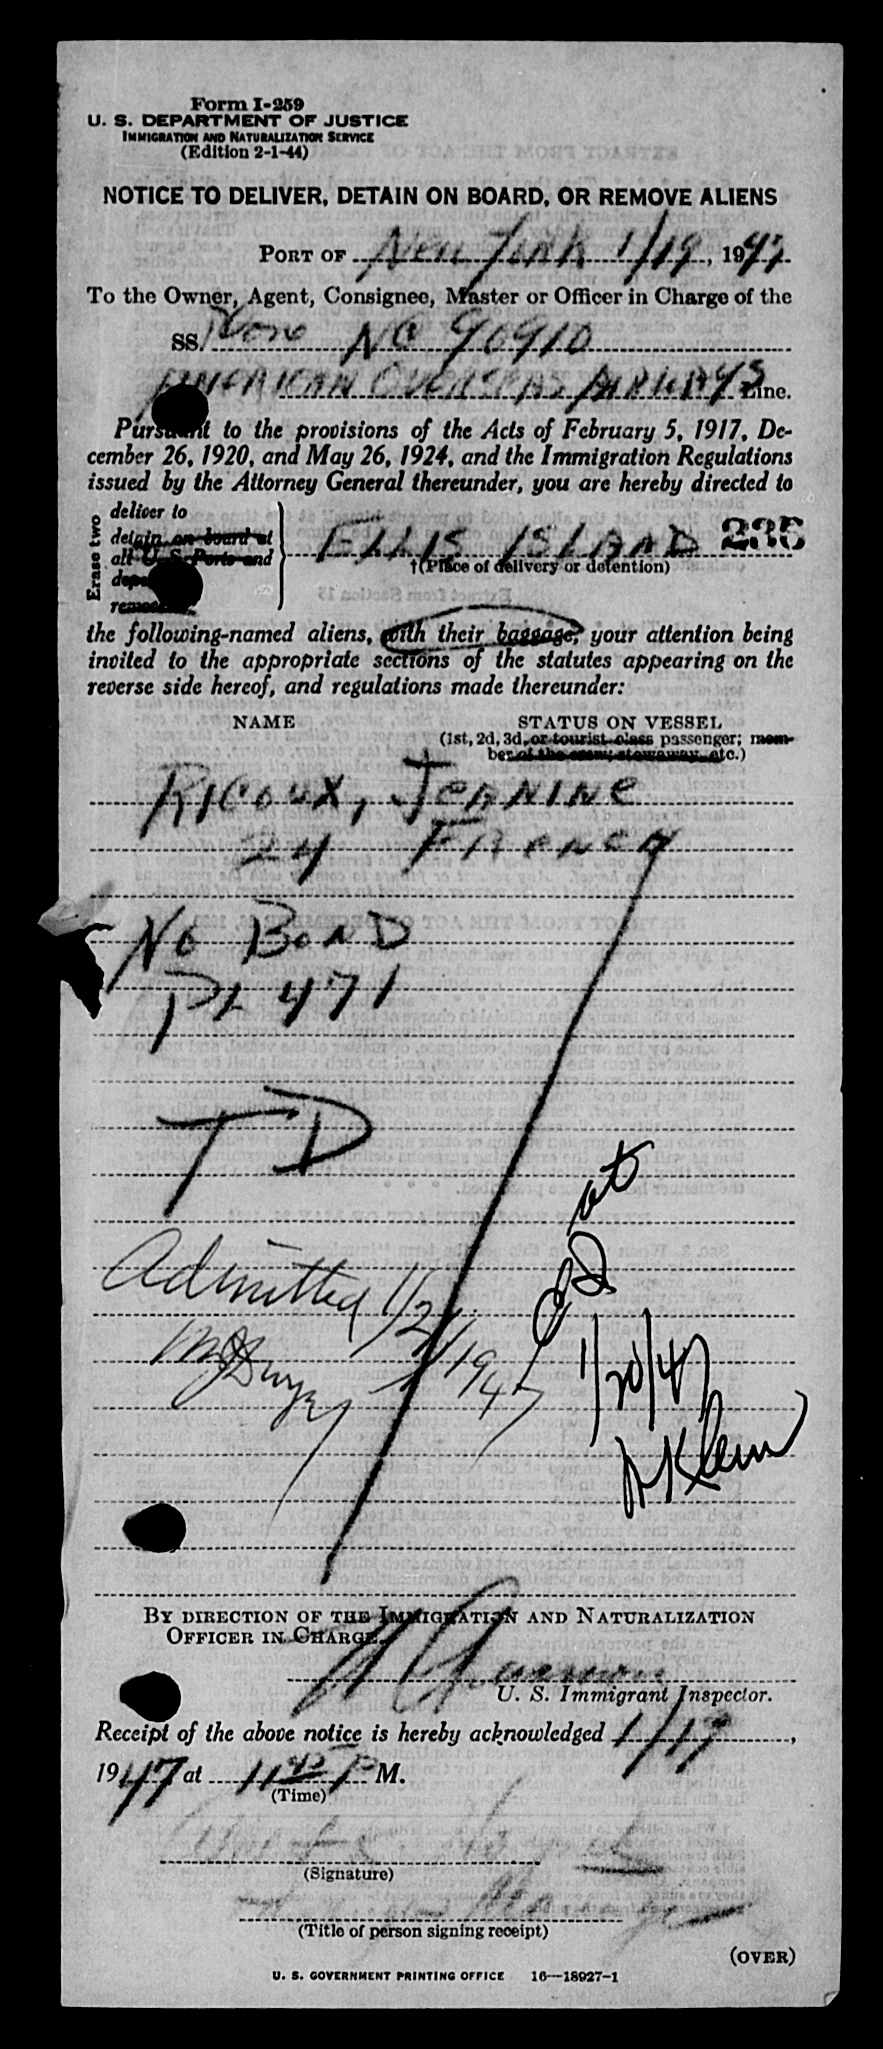 Form I-259
U. S. DEPARTMENT OF JUSTICE
IMMIGRATION AND NATURALIZATION SERVICE
(Edition 2-1-44)
NOTICE TO DELIVER, DETAIN ON BOARD, OR REMOVE ALIENS
PORT OF New York 1/19, 1947
To the Owner, Agent, Consignee, Master or Officer in Charge of the
SS. NC 90910
AMERICAN OVERSEAS AIRWAYS Line.
Pursuant to the provisions of the Acts of February 5, 1917, De-
cember 26, 1920, and May 26, 1924, and the Immigration Regulations
issued by the Attorney General thereunder, you are hereby directed to
Erase two
deliver to
detain on board at
all U. S. Ports and
remove
ELLIS ISLAND 235
†(Place of delivery or detention)
the following-named aliens, with their baggage, your attention being
invited to the appropriate sections of the statutes appearing on the
reverse side hereof, and regulations made thereunder:
NAME STATUS ON VESSEL
(1st, 2d, 3d, or tourist class passenger; mem-
ber of the crew; stowaway, etc.)
RICOUX, JEANINE
24 FRENCH
NO BOND
PL 471
TD
Admitted 1/21/1947
at
1/20/47
Klein
BY DIRECTION OF THE IMMIGRATION AND NATURALIZATION
OFFICER IN CHARGE.
U. S. Immigrant Inspector.
Receipt of the above notice is hereby acknowledged 1/19,
1947 at 11 45 P M.
(Time)
(Signature)
(Title of person signing receipt)
(OVER)
U. S. GOVERNMENT PRINTING OFFICE 16—18927-1